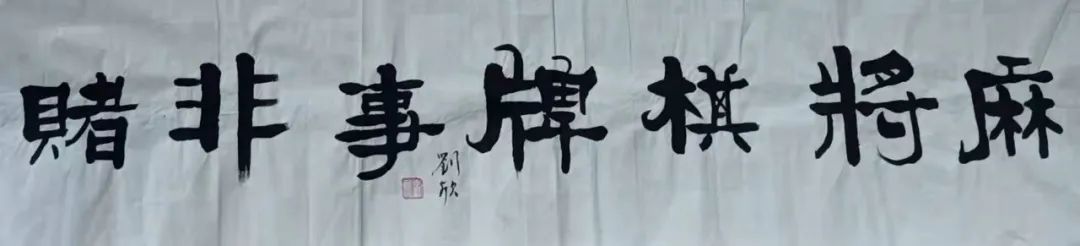 麻將棋牌事非賭
劉欣